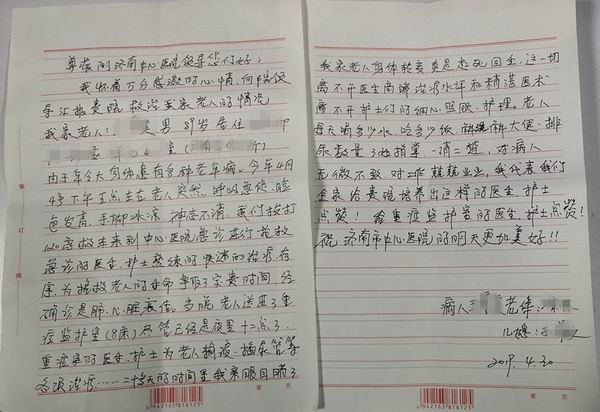 尊敬的济南中心医院领导您们好;
我怀着万分感激的心情,向院领
导汇报贵院救治我家老人的情况
我家老人: 男 89岁居住
由于年令大身体患有多种老年病。今年4月
4号下午五点左右老人突然呼吸急促,脸
色发青,手脚冰凉,神志不清,我们拨打
120急救车来到中心医院急诊进行抢救
急诊的医生,护士熟练的快速的治疗,有
序为抢救老人的生命争取了宝贵时间,经
确诊是肺,心脏衰竭。当晚老人送进了重
症监护室(8床)尽管已经是夜里十二点了,
重症室的医生,护士为老人输液、插尿管等
各项治疗……二十多天的时间里我亲眼目睹了
我家老人身体转变更是起死回生,这一切
离不开医生高端治疗水平和精湛医术
离不开护士们的细心照顾,护理。老人
每天喝多少水,吃多少饭,大便、排
尿数量3她指掌,一清二楚,对病人
无微不致,对工作兢兢业业,我代表我们
全家给贵院培养出这样的医生,护士
点赞!给重症监护室的医生,护士点赞!
祝济南市中心医院的明天更加美好!!
病人 老伴:
儿媳:
2019.4.30
装订线
第 页
6942163816123
第 页
6942163816123